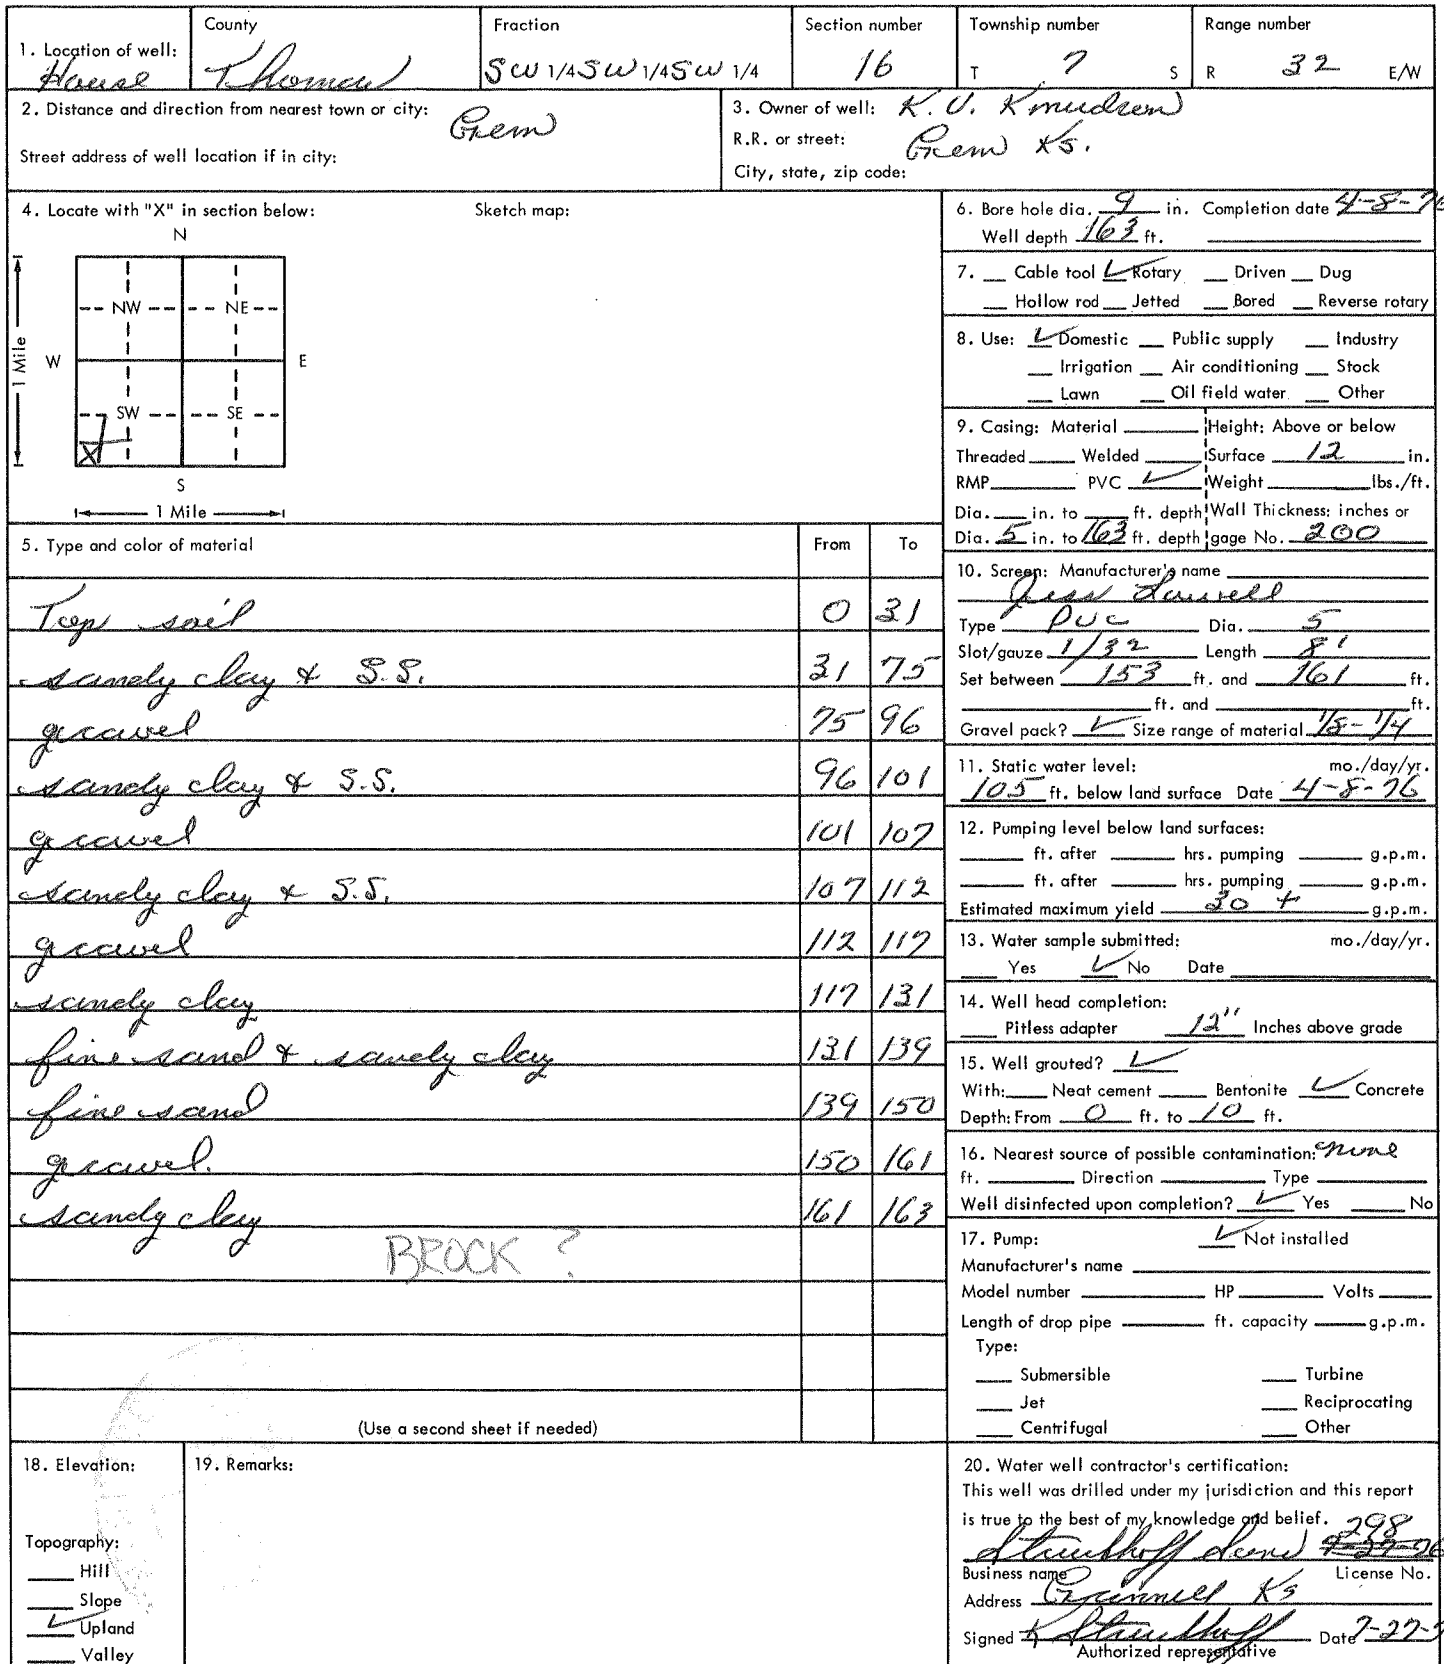 1. Location of well: House
County Thomas
Fraction SW 1/4 SW 1/4 SW 1/4
Section number 16
Township number T 7 S
Range number R 32 E/W
2. Distance and direction from nearest town or city: Gem
Street address of well location if in city:
3. Owner of well: K.U. Knudsen
R.R. or street: Gem Ks.
City, state, zip code:
4. Locate with "X" in section below:
Sketch map:
N
NW NE
W E
1 Mile
SW SE
X
S
1 Mile
5. Type and color of material From To
Top soil 0 31
sandy clay & S.S. 31 75
gravel 75 96
sandy clay & S.S. 96 101
gravel 101 107
sandy clay & S.S. 107 112
gravel 112 117
sandy clay 117 131
fine sand & sandy clay 131 139
fine sand 139 150
gravel. 150 161
sandy clay 161 163
BROCK ?
(Use a second sheet if needed)
6. Bore hole dia. 9 in. Completion date 4-8-76
Well depth 163 ft.
7. Cable tool ✓ Rotary Driven Dug
Hollow rod Jetted Bored Reverse rotary
8. Use: ✓ Domestic Public supply Industry
Irrigation Air conditioning Stock
Lawn Oil field water Other
9. Casing: Material Height: Above or below
Threaded Welded Surface 12 in.
RMP PVC ✓ Weight lbs./ft.
Dia. in. to ft. depth Wall Thickness: inches or
Dia. 5 in. to 163 ft. depth gage No. 200
10. Screen: Manufacturer's name
Jess
Type PVC Dia. 5
Slot/gauze 1/32 Length 8'
Set between 153 ft. and 161 ft.
ft. and ft.
Gravel pack? ✓ Size range of material 1/8-1/4
11. Static water level: mo./day/yr.
105 ft. below land surface Date 4-8-76
12. Pumping level below land surfaces:
ft. after hrs. pumping g.p.m.
ft. after hrs. pumping g.p.m.
Estimated maximum yield 30 + g.p.m.
13. Water sample submitted: mo./day/yr.
Yes ✓ No Date
14. Well head completion:
Pitless adapter 12" Inches above grade
15. Well grouted? ✓
With: Neat cement Bentonite ✓ Concrete
Depth: From 0 ft. to 10 ft.
16. Nearest source of possible contamination: none
ft. Direction Type
Well disinfected upon completion? ✓ Yes No
17. Pump: ✓ Not installed
Manufacturer's name
Model number HP Volts
Length of drop pipe ft. capacity g.p.m.
Type:
Submersible Turbine
Jet Reciprocating
Centrifugal Other
18. Elevation:
Topography:
Hill
Slope
✓ Upland
Valley
19. Remarks:
20. Water well contractor's certification:
This well was drilled under my jurisdiction and this report
is true to the best of my knowledge and belief.
298
7-27-76
Business name License No.
Address Grinnell Ks
Signed Date 7-27-7
Authorized representative